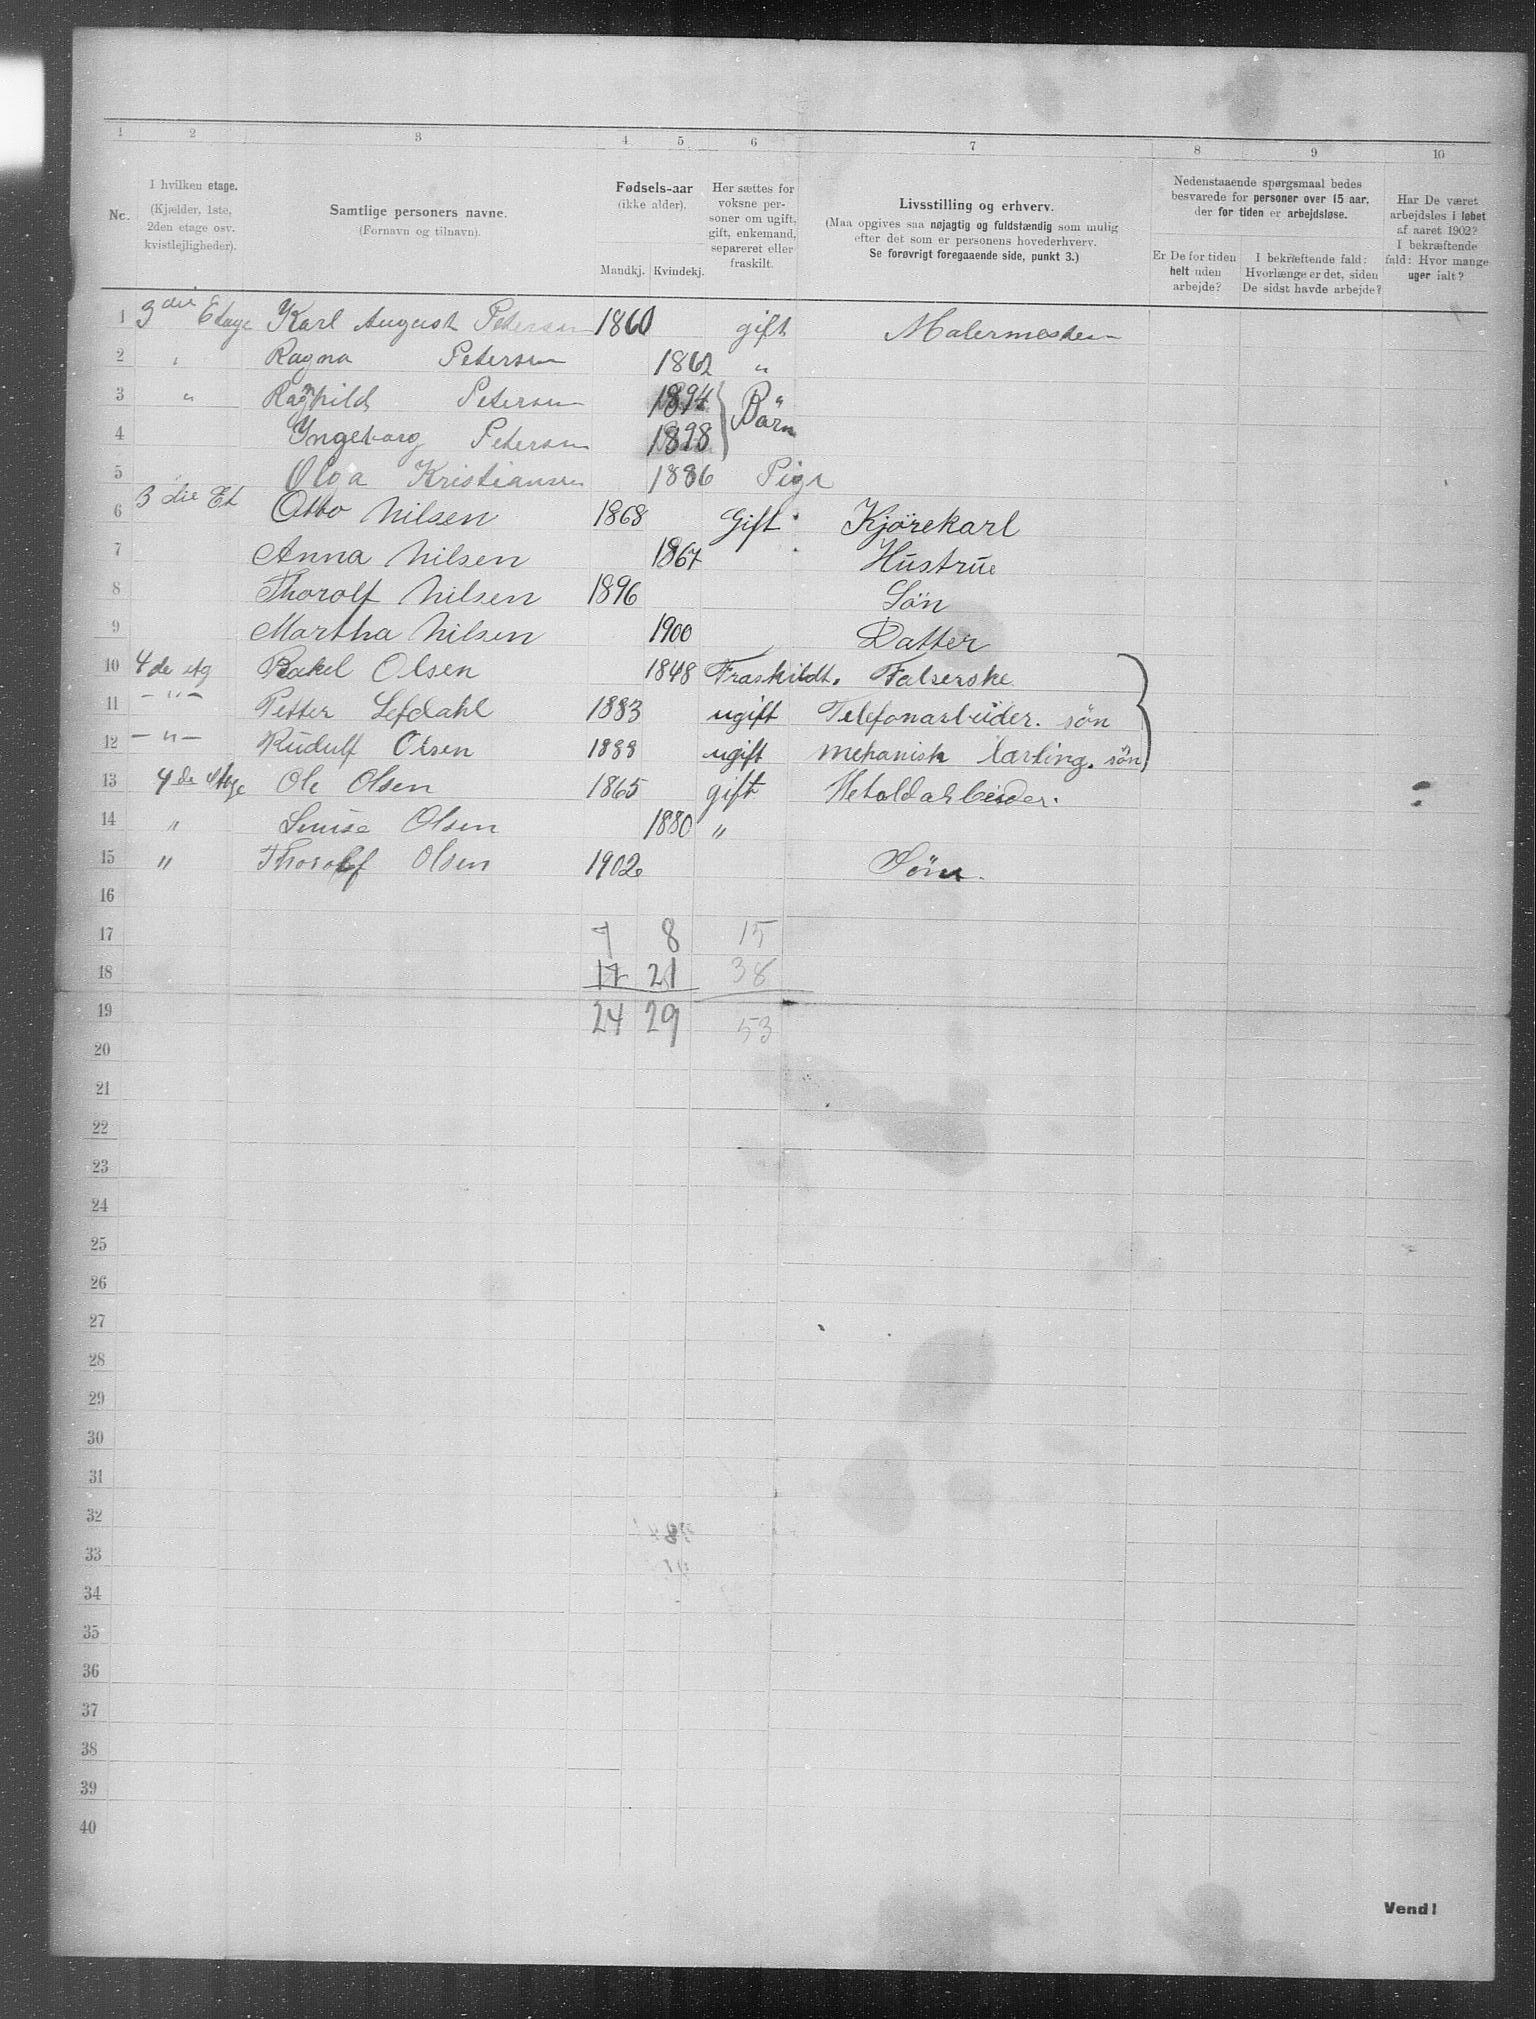 1 2 3 4 5 6 7 8 9 10
Nc.
I hvilken etage.
(Kjælder, 1ste, 2den etage osv. kvistlejligheder).
Samtlige personers navne.
(Fornavn og tilnavn).
Fødsels-aar
(ikke alder).
Mandkj. Kvindekj.
Her sættes for voksne personer om ugift, gift, enkemand, separeret eller fraskilt.
Livsstilling og erhverv.
(Maa opgives saa nøjagtig og fuldstændig som mulig efter det som er personens hovederhverv.
Se forøvrigt foregaaende side, punkt 3.)
Nedenstaaende spørgsmaal bedes besvarede for personer over 15 aar, der for tiden er arbejdsløse.
Er De for tiden helt uden arbejde?
I bekræftende fald: Hvorlænge er det, siden De sidst havde arbejde?
Har De været arbejdsløs i løbet af aaret 1902? I bekræftende fald: Hvor mange uger ialt?
1 3 die Etage Karl August Petersen 1860 gift Malermester
2 " Ragna Petersen 1862 "
3 " Ragnhild Petersen 1894 } Børn
4 Yngeborg Petersen 1898
5 Olga Kristiansen 1886 Pige
6 3 die Et Otto Nilsen 1868 Gift Kjörekarl
7 Anna Nilsen 1867 Hustrue
8 Thorolf Nilsen 1896 Sön
9 Martha Nilsen 1900 Datter
10 4 de etg Rakel Olsen 1848 Fraskildt. Falserske
11 — " — Petter Lefdahl 1883 ugift Telefonarbeider. søn
12 — " — Rudulf Olsen 1888 ugift mekanisk lærling. søn
13 4 de Etage Ole Olsen 1865 gift
14 " Louise Olsen 1880 "
15 " Thorolf Olsen 1902 Sön.
16
17 7 8 15
18 17 21 38
19 24 29 53
20
21
22
23
24
25
26
27
28
29
30
31
32
33
34
35
36
37
38
39
40
Vend!